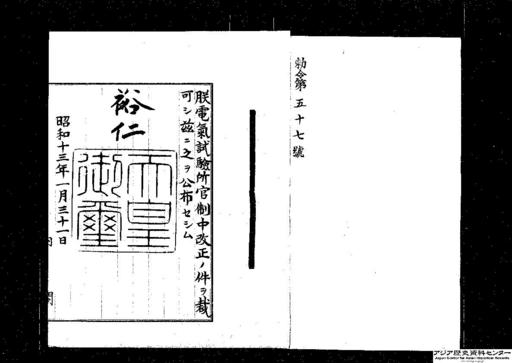 勅令第五十七號
朕電氣試驗所官制中改正ノ件ヲ裁
可シ茲ニ之ヲ公布セシム
裕仁
天皇
御璽
昭和十三年一月三十一日
アジア歴史資料センター
Japan Center for Asian Historical Records